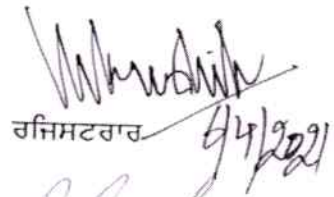 ਰਜਿਸਟਰਾਰ
6/4/2021